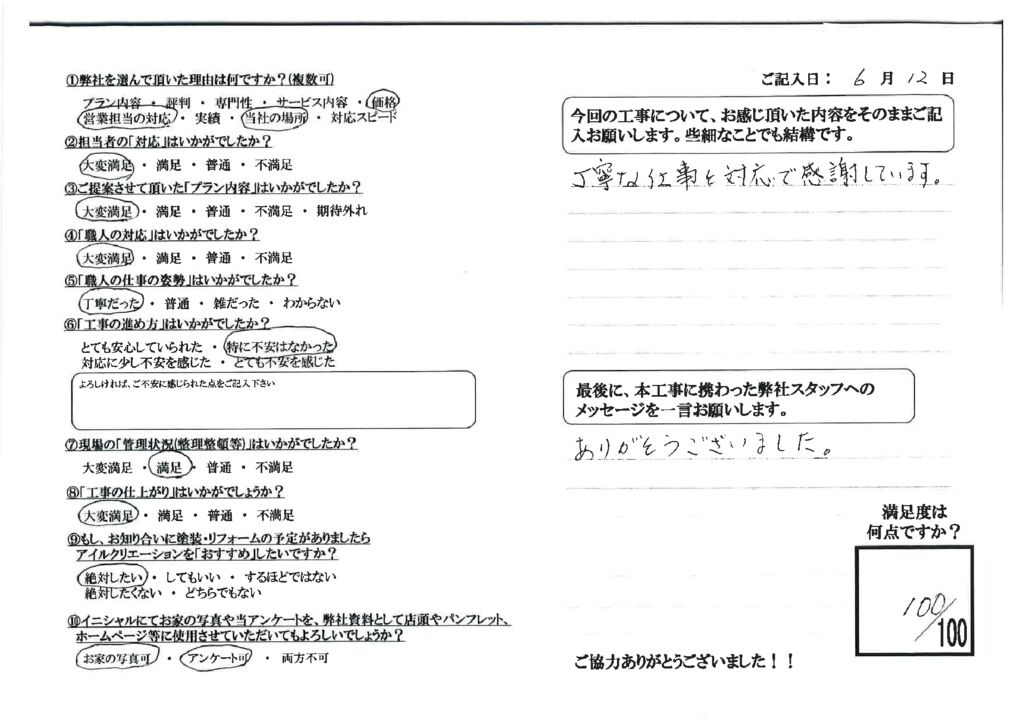 ①弊社を選んで頂いた理由は何ですか？(複数可)
プラン内容 ・ 評判 ・ 専門性 ・ サービス内容 ・ 価格
営業担当の対応 ・ 実績 ・ 当社の場所 ・ 対応スピード
②担当者の「対応」はいかがでしたか？
大変満足 ・ 満足 ・ 普通 ・ 不満足
③ご提案させて頂いた「プラン内容」はいかがでしたか？
大変満足 ・ 満足 ・ 普通 ・ 不満足 ・ 期待外れ
④「職人の対応」はいかがでしたか？
大変満足 ・ 満足 ・ 普通 ・ 不満足
⑤「職人の仕事の姿勢」はいかがでしたか？
丁寧だった ・ 普通 ・ 雑だった ・ わからない
⑥「工事の進め方」はいかがでしたか？
とても安心していられた ・ 特に不安はなかった
対応に少し不安を感じた ・ とても不安を感じた
よろしければ、ご不安に感じられた点をご記入下さい
⑦現場の「管理状況(整理整頓等)」はいかがでしたか？
大変満足 ・ 満足 ・ 普通 ・ 不満足
⑧「工事の仕上がり」はいかがでしょうか？
大変満足 ・ 満足 ・ 普通 ・ 不満足
⑨もし、お知り合いに塗装・リフォームの予定がありましたら
アイルクリエーションを「おすすめ」したいですか？
絶対したい ・ してもいい ・ するほどではない
絶対したくない ・ どちらでもない
⑩イニシャルにてお家の写真や当アンケートを、弊社資料として店頭やパンフレット、
ホームページ等に使用させていただいてもよろしいでしょうか？
お家の写真可 ・ アンケート可 ・ 両方不可
ご記入日： 6 月 12 日
今回の工事について、お感じ頂いた内容をそのままご記
入お願いします。些細なことでも結構です。
丁寧な仕事と対応で感謝しています。
最後に、本工事に携わった弊社スタッフへの
メッセージを一言お願いします。
ありがとうございました。
満足度は
何点ですか？
100/100
ご協力ありがとうございました！！